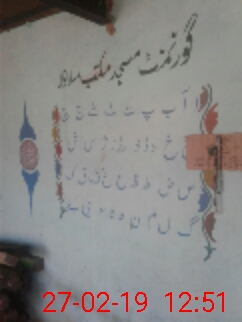 گورنمنٹ مسجد مکتب
ا آ ب پ ت ٹ ث ج چ
ح خ د ڈ ذ ر ڑ ز ژ س ش
ص ض ط ظ ع غ ف ق ک
گ ل م ن و ہ ء ی ے
27-02-19 12:51